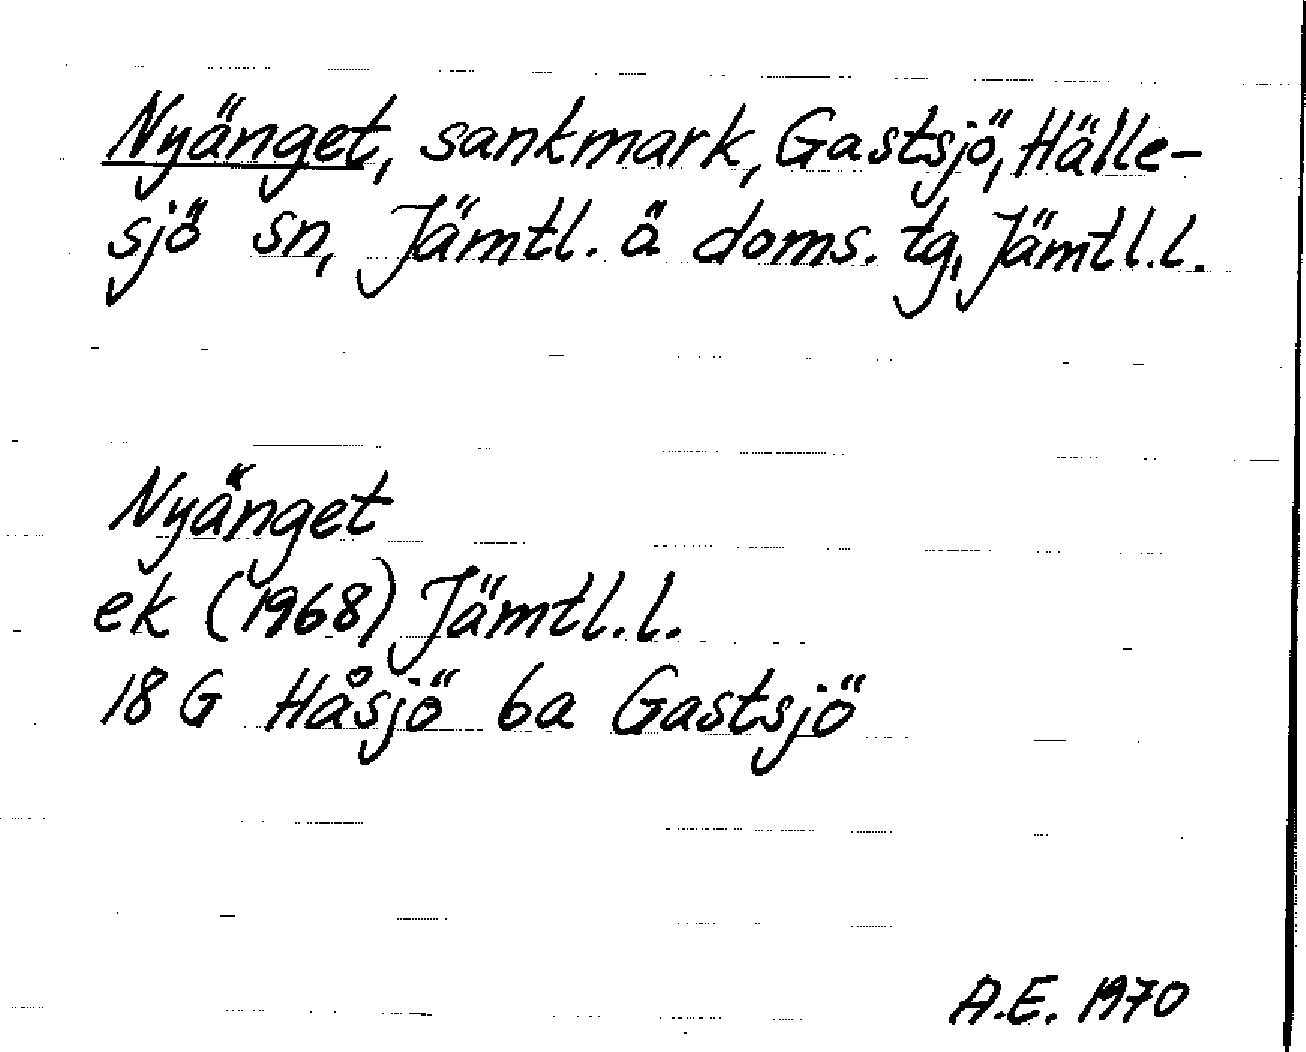 Nyänget, sankmark, Gastsjö, Hälle-
sjö sn, Jämtl. ö doms. tg, Jämtl.l.
Nyänget
ek (1968) Jämtl.l.
18 G Håsjö 6a Gastsjö
A.E. 1970